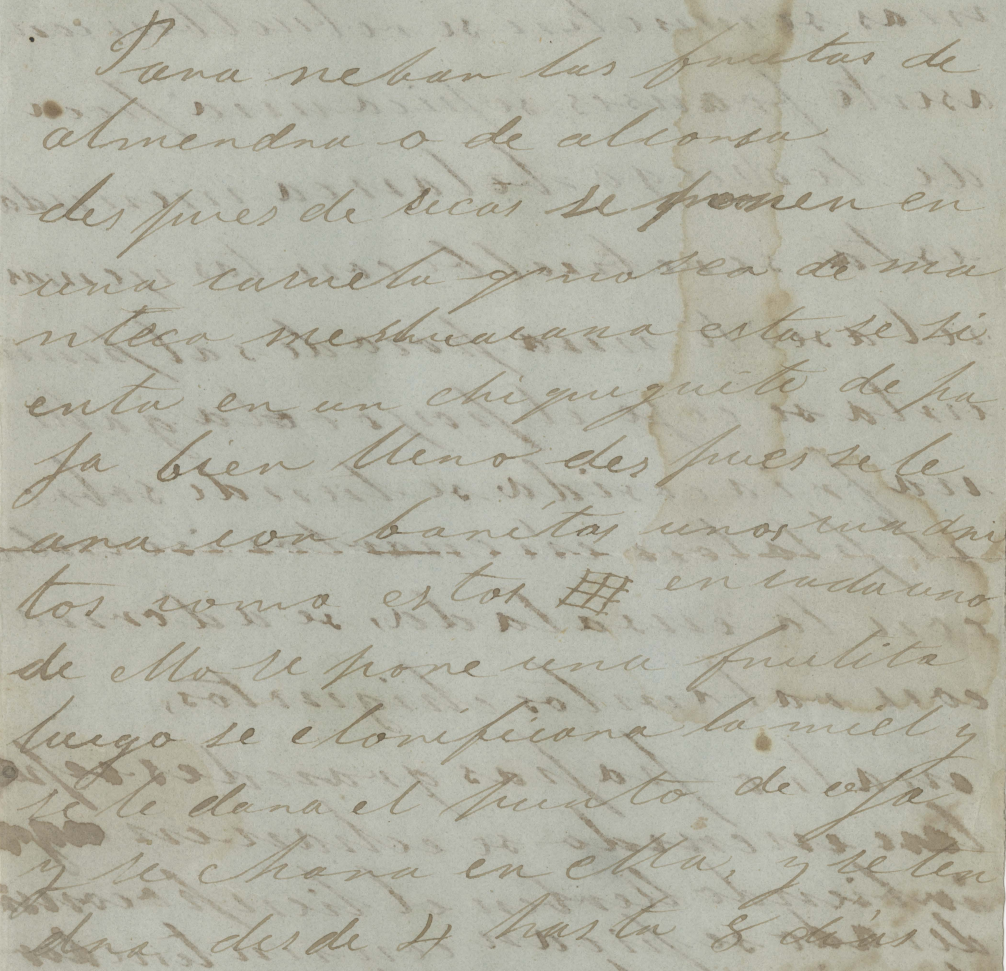 Para nebar las frutas de
almendra o de alcorsa
des pues de secas se ponen en
una casuela q no sea de ma
nteca mechuacana esta se si
enta en un chiquiguite de pa
ja bien lleno des pues se le
ara con baritas unos cuadri
tos como estos en cada uno
de ello se pone una frutita
luego se clarificara la miel y
se le dara el punto de oja
y se chara en ella, y se ten
dra desde 4 hasta 8 dias